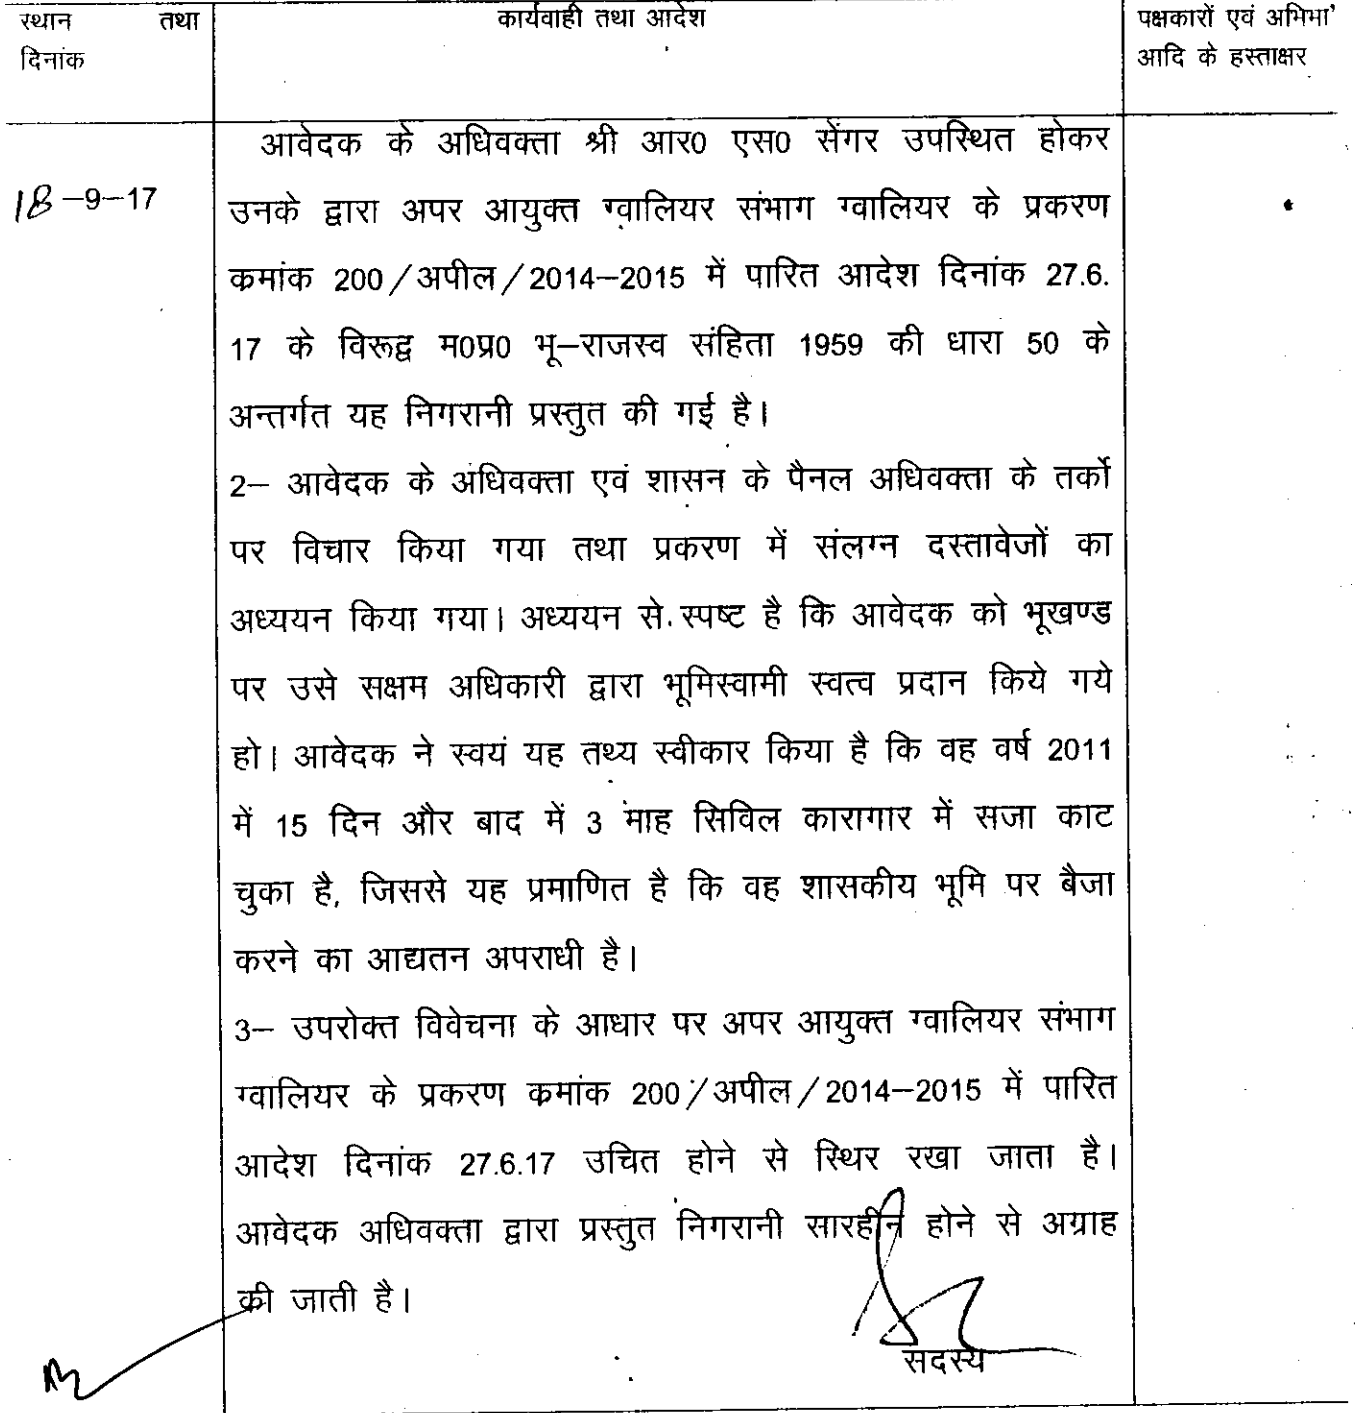 स्थान तथा
दिनांक
कार्यवाही तथा आदेश
पक्षकारों एवं अभिभा'
आदि के हस्ताक्षर
18-9-17
आवेदक के अधिवक्ता श्री आर0 एस0 सेंगर उपस्थित होकर
उनके द्वारा अपर आयुक्त ग्वालियर संभाग ग्वालियर के प्रकरण
कमांक 200/अपील/2014-2015 में पारित आदेश दिनांक 27.6.
17 के विरूद्व म0प्र0 भू-राजस्व संहिता 1959 की धारा 50 के
अन्तर्गत यह निगरानी प्रस्तुत की गई है।
2- आवेदक के अधिवक्ता एवं शासन के पैनल अधिवक्ता के तर्को
पर विचार किया गया तथा प्रकरण में संलग्न दस्तावेजों का
अध्ययन किया गया। अध्ययन से स्पष्ट है कि आवेदक को भूखण्ड
पर उसे सक्षम अधिकारी द्वारा भूमिस्वामी स्वत्व प्रदान किये गये
हो। आवेदक ने स्वयं यह तथ्य स्वीकार किया है कि वह वर्ष 2011
में 15 दिन और बाद में 3 माह सिविल कारागार में सजा काट
चुका है, जिससे यह प्रमाणित है कि वह शासकीय भूमि पर बैजा
करने का आद्यतन अपराधी है।
3- उपरोक्त विवेचना के आधार पर अपर आयुक्त ग्वालियर संभाग
ग्वालियर के प्रकरण कमांक 200/अपील/2014-2015 में पारित
आदेश दिनांक 27.6.17 उचित होने से स्थिर रखा जाता है।
आवेदक अधिवक्ता द्वारा प्रस्तुत निगरानी सारहीन होने से अग्राह
की जाती है।
सदस्य